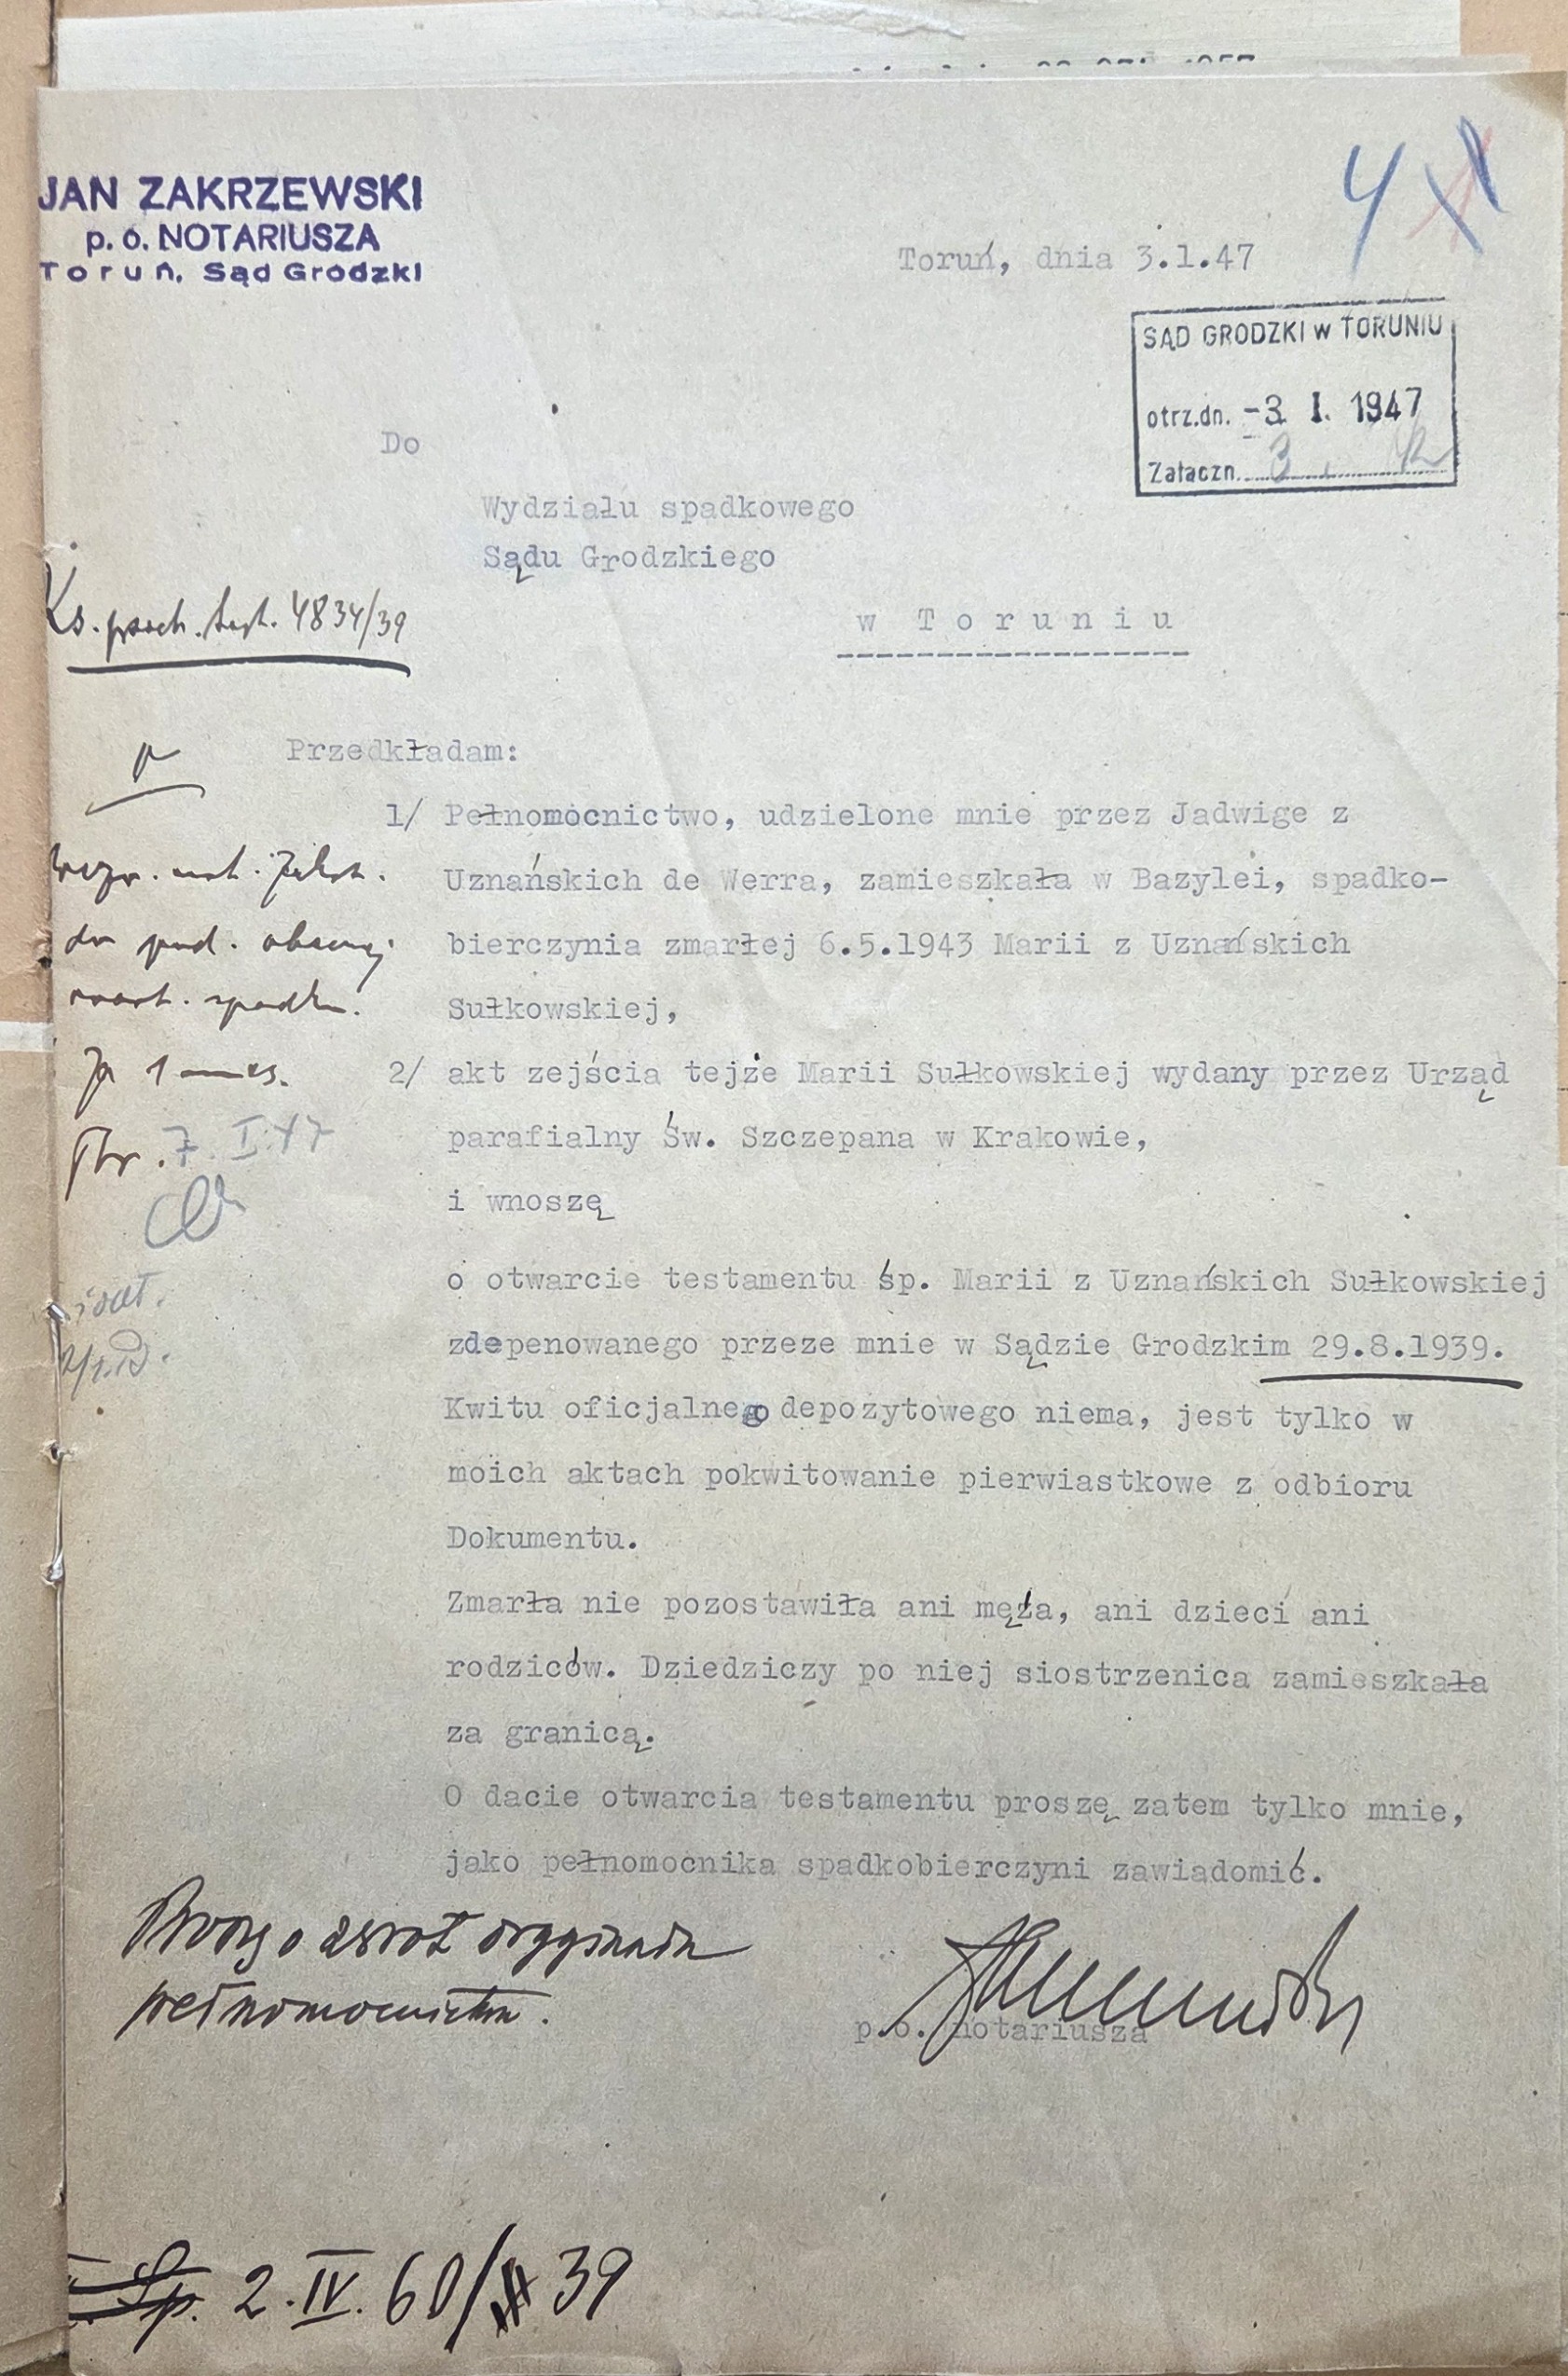 JAN ZAKRZEWSKI
p. o. NOTARIUSZA
Toruń, Sąd Grodzki
4
Toruń, dnia 3.1.47
SĄD GRODZKI w TORUNIU
otrz.dn. -3 I. 1947
Załączn. 3
Do
Wydziału spadkowego
Sądu Grodzkiego
w Toruniu
Ks. przech. test. 4834/39
Przedkładam:
1/ Pełnomocnictwo, udzielone mnie przez Jadwige z
Uznańskich de Werra, zamieszkała w Bazylei, spadko-
bierczynia zmarłej 6.5.1943 Marii z Uznańskich
Sułkowskiej,
2/ akt zejścia tejże Marii Sułkowskiej wydany przez Urząd
parafialny Św. Szczepana w Krakowie,
i wnoszę
o otwarcie testamentu śp. Marii z Uznańskich Sułkowskiej
zdepenowanego przeze mnie w Sądzie Grodzkim 29.8.1939.
Kwitu oficjalnego depozytowego niema, jest tylko w
moich aktach pokwitowanie pierwiastkowe z odbioru
Dokumentu.
Zmarła nie pozostawiła ani męża, ani dzieci ani
rodziców. Dziedziczy po niej siostrzenica zamieszkała
za granicą.
O dacie otwarcia testamentu proszę zatem tylko mnie,
jako pełnomocnika spadkobierczyni zawiadomić.
wezw. not. Zakrz.
do pod.
wart. spadku.
za 1 mies.
7. I. 47
Proszę o zwrot oryginału
pełnomocnictwa.
p.o. notariusza
Sp. 2. IV. 60/39